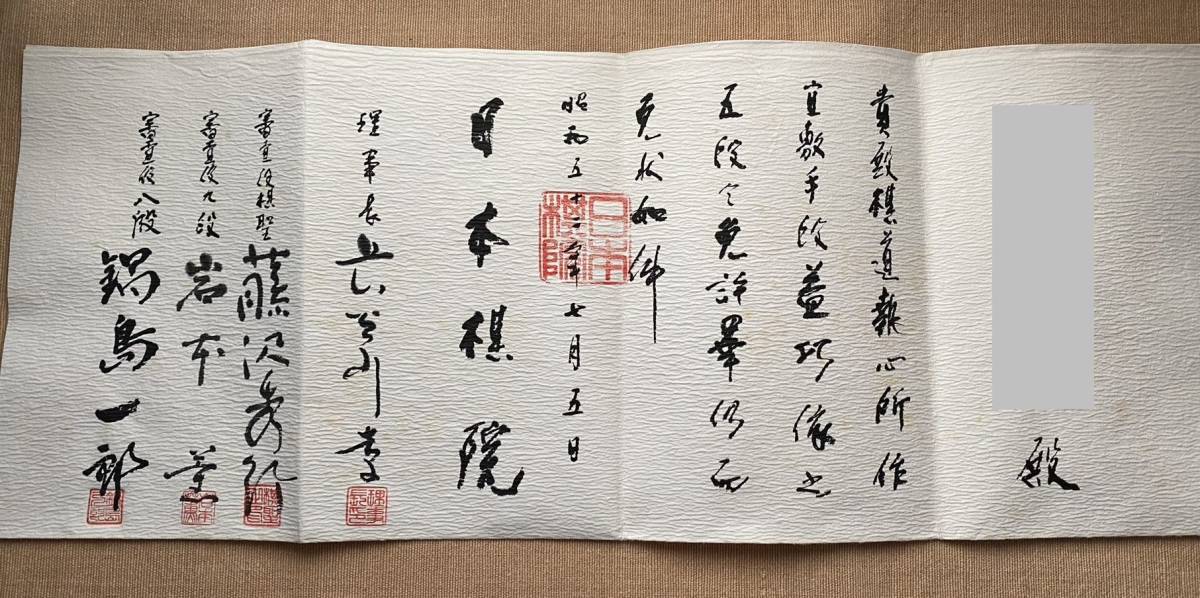 殿
貴殿棋道執心所作
宜敷手段益巧依之
五段令免許畢仍而
免状如件
昭和五十二年七月五日
日本棋院
日本棋院
理事長 長谷川章
審査役棋聖 藤沢秀行
審査役九段 岩本薫
審査役八段 鍋島一郎